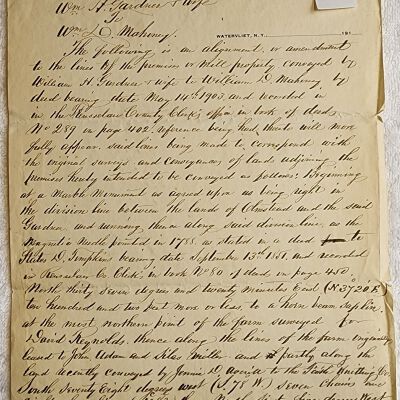 Wm H. Gardner & wife
To
Wm D. Mahiney
WATERVLIET, N.Y., 191
The following is an alignment, or amendment
to the lines of the premises or Mill property conveyed by
William H. Gardner & wife to William D. Mahiney by
deed bearing date May 14th 1903 and recorded in
in the Rensselaer County Clerk's office in book of deeds
No 289 on page 402, reference being had thereto will more
fully appear. said lines being made to correspond with
the original surveys and Conveyances of lands adjoining the
premises hereby intended to be conveyed as follows! Beginning
at a Marble Monument as agreed upon as being right in
the division line between the lands of Olmstead and the said
Gardner and running thence along said division line, as the
Magnetic Needle pointed in 1788. as stated in a deed to
D. Tompkins bearing date September 13th 1851. and recorded
in Rensselaer Co. Clks. in book No 80 of deeds on page 450
North thirty seven degrees and twenty minutes East (N 37,20 E
ten hundred and two feet more or less, to a horn beam Sapling
at the most northern point of the farm surveyed for
David Reynolds, thence along the lines of the farm originally
leased to John and Silas and partly along the
land recently conveyed by D. to the
South Seventy Eight degrees west (S. 78 W) Seven Chains and